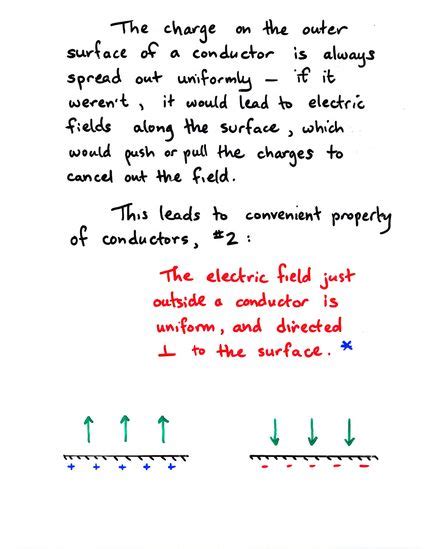 The charge on the outer
surface of a conductor is always
spread out uniformly — if it
weren't, it would lead to electric
fields along the surface, which
would push or pull the charges to
cancel out the field.
This leads to convenient property
of conductors, #2:
The electric field just
outside a conductor is
uniform, and directed
⊥ to the surface. *
+ + + + +
- - - - -